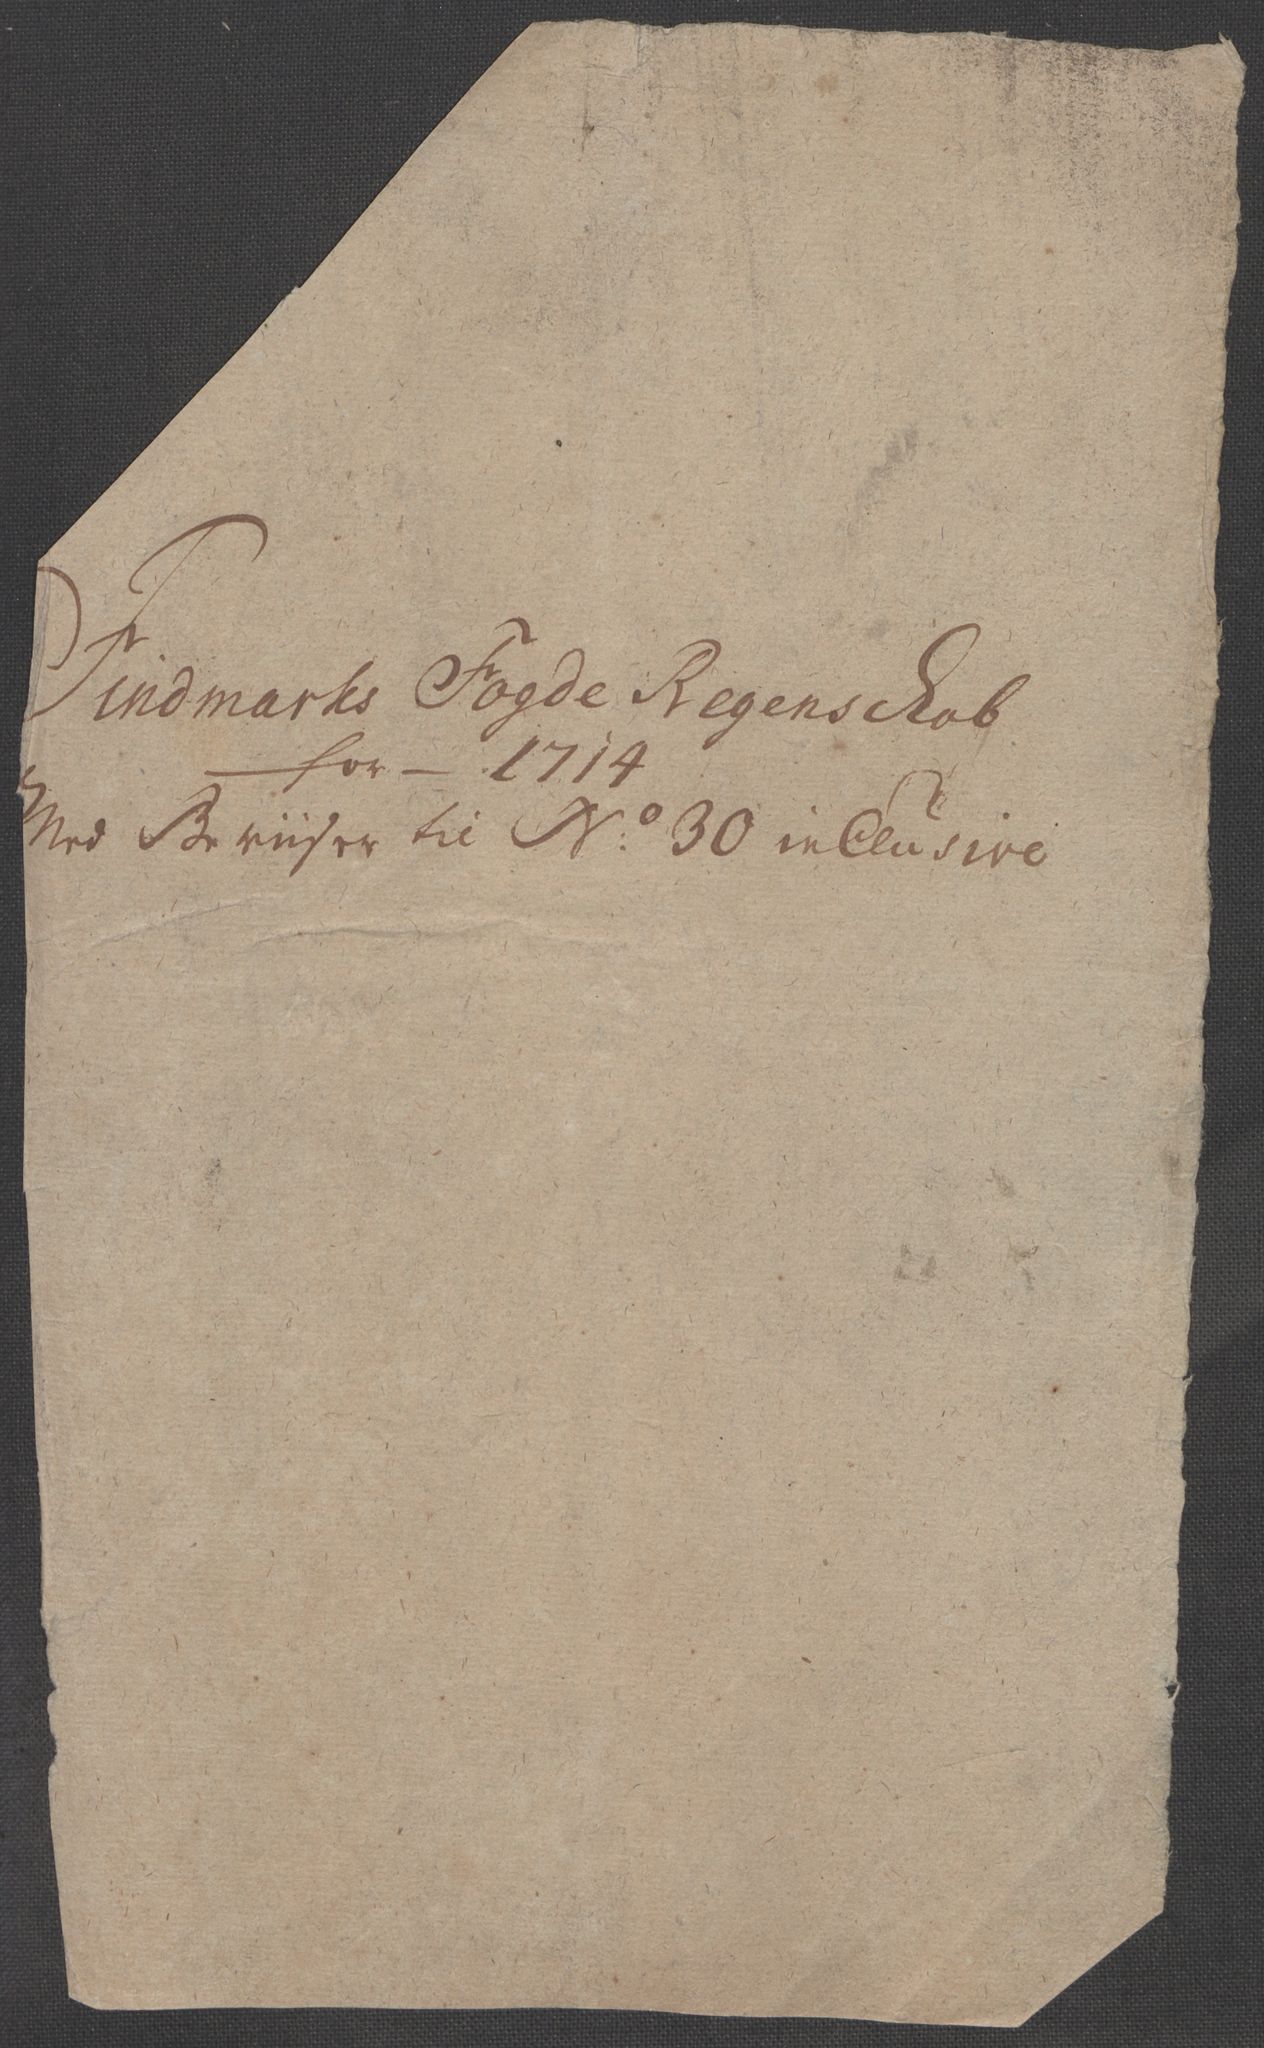 Findmarks Fogde Regenskab
for – 1714
Med Beviiser til N:o 30 inclusive